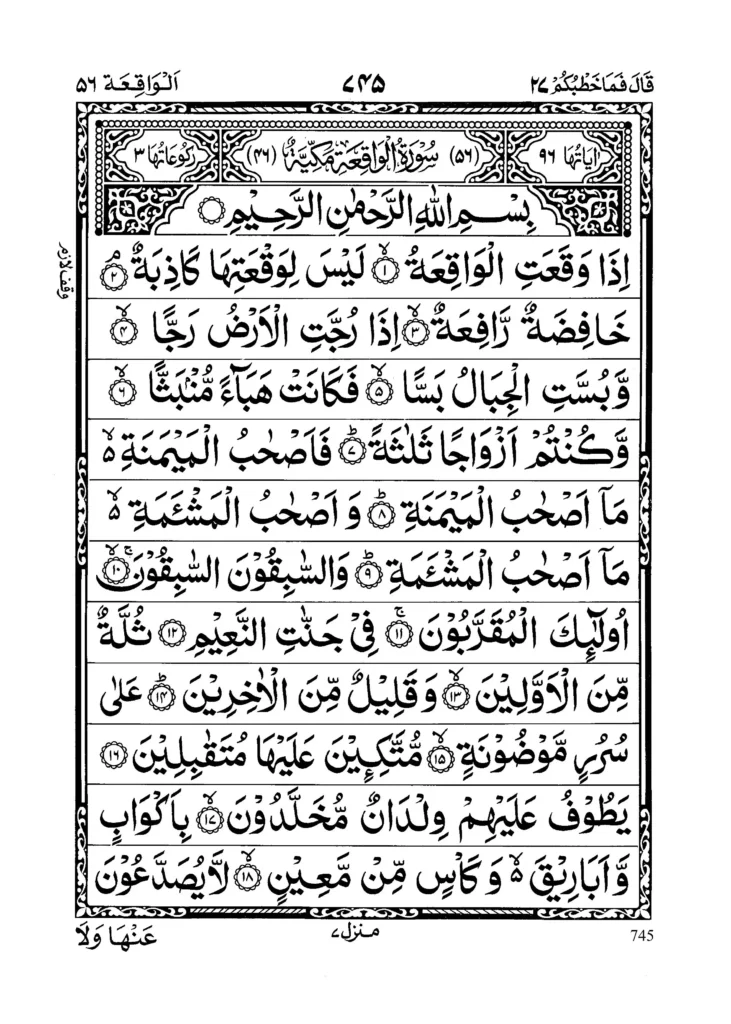 قَالَ فَمَا خَطْبُكُمْ ۲۷
۷۴۵
اَلْوَاقِعَة ۵۶
اٰيَاتُهَا ۹۶
(۵۶) سُوْرَةُ الْوَاقِعَةِ مَكِّيَّةٌ (۴۶)
رُكُوْعَاتُهَا ۳
بِسْمِ اللّٰهِ الرَّحْمٰنِ الرَّحِيْمِ ۝
اِذَا وَقَعَتِ الْوَاقِعَةُ ۙ‏﴿۱﴾ لَيْسَ لِوَقْعَتِهَا كَاذِبَةٌ ۘ‏﴿۲﴾
وقف لازم
خَافِضَةٌ رَّافِعَةٌ ۙ‏﴿۳﴾ اِذَا رُجَّتِ الْاَرْضُ رَجًّا ۙ‏﴿۴﴾
وَّبُسَّتِ الْجِبَالُ بَسًّا ۙ‏﴿۵﴾ فَكَانَتْ هَبَآءً مُّنْۢبَثًّا ۙ‏﴿۶﴾
وَّكُنْتُمْ اَزْوَاجًا ثَلٰثَةً ؕ‏﴿۷﴾ فَاَصْحٰبُ الْمَيْمَنَةِ ۵
مَاۤ اَصْحٰبُ الْمَيْمَنَةِ ؕ‏﴿۸﴾ وَ اَصْحٰبُ الْمَشْئَمَةِ ۙ۵
مَاۤ اَصْحٰبُ الْمَشْئَمَةِ ؕ‏﴿۹﴾ وَالسّٰبِقُوْنَ السّٰبِقُوْنَ ۚۙ‏﴿۱۰﴾
اُولٰٓئِكَ الْمُقَرَّبُوْنَ ۚ‏﴿۱۱﴾ فِىْ جَنّٰتِ النَّعِيْمِ ﴿۱۲﴾ ثُلَّةٌ
مِّنَ الْاَوَّلِيْنَ ۙ‏﴿۱۳﴾ وَ قَلِيْلٌ مِّنَ الْاٰخِرِيْنَ ؕ‏﴿۱۴﴾ عَلٰى
سُرُرٍ مَّوْضُوْنَةٍ ۙ‏﴿۱۵﴾ مُّتَّكِـِٕيْنَ عَلَيْهَا مُتَقٰبِلِيْنَ ﴿۱۶﴾
يَطُوْفُ عَلَيْهِمْ وِلْدَانٌ مُّخَلَّدُوْنَ ۙ‏﴿۱۷﴾ بِاَكْوَابٍ
وَّ اَبَارِيْقَ ۙ۵ وَ كَاْسٍ مِّنْ مَّعِيْنٍ ۙ‏﴿۱۸﴾ لَّا يُصَدَّعُوْنَ
عَنْهَا وَلَا
منزل ۷
745